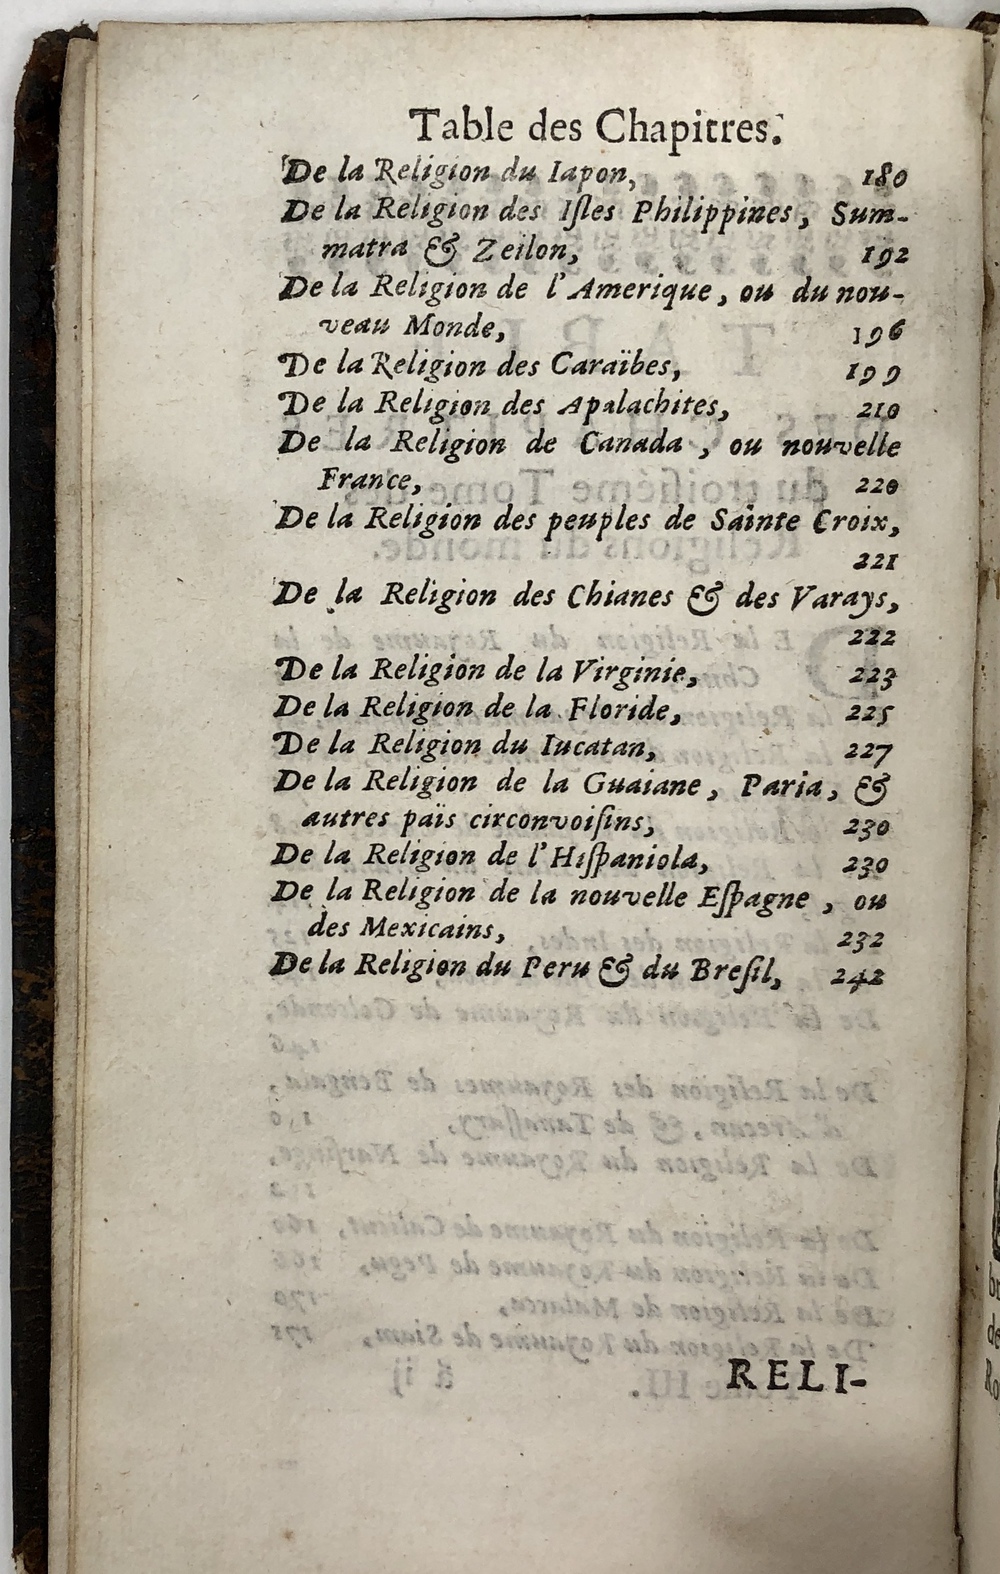 Table des Chapitres.
De la Religion du Iapon, 180
De la Religion des Iſles Philippines, Sum-
matra & Zeilon, 192
De la Religion de l'Amerique, ou du nou-
veau Monde, 196
De la Religion des Caraïbes, 199
De la Religion des Apalachites, 210
De la Religion de Canada, ou nouvelle
France, 220
De la Religion des peuples de Sainte Croix,
221
De la Religion des Chianes & des Varays,
222
De la Religion de la Virginie, 223
De la Religion de la Floride, 225
De la Religion du Iucatan, 227
De la Religion de la Guaiane, Paria, &
autres païs circonvoiſins, 230
De la Religion de l'Hiſpaniola, 230
De la Religion de la nouvelle Eſpagne, ou
des Mexicains, 232
De la Religion du Peru & du Breſil, 242
RELI-